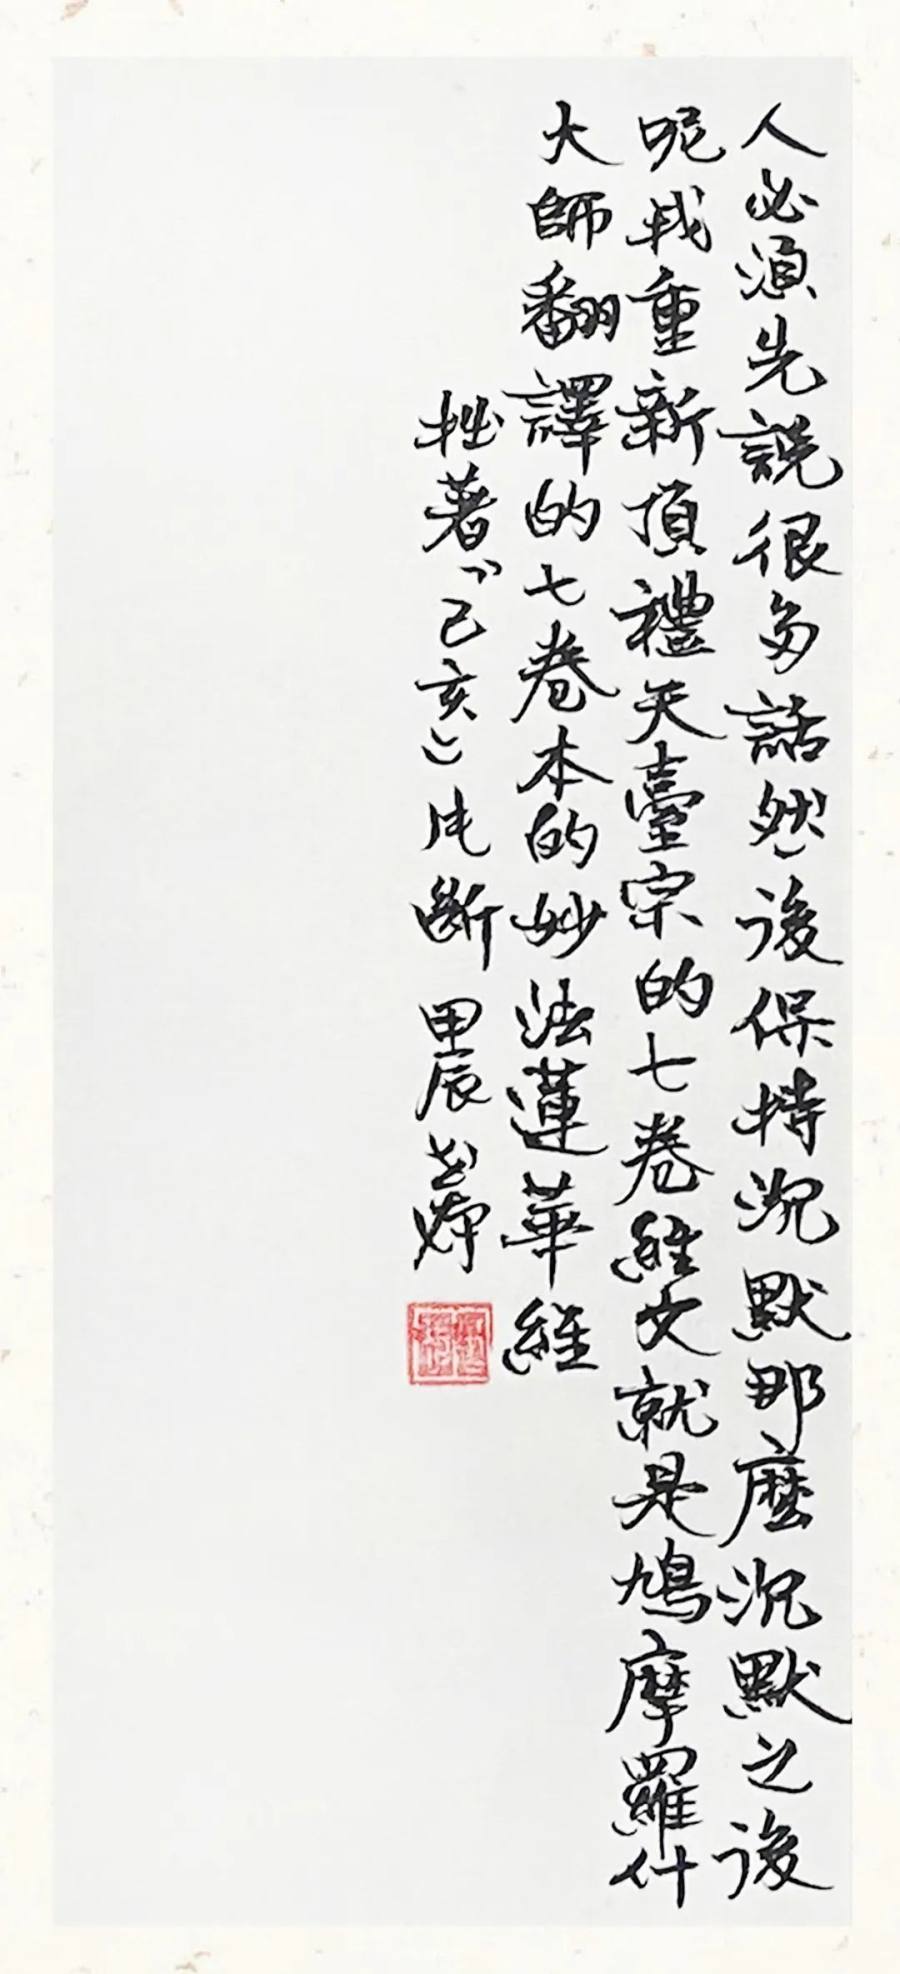 人必須先說很多話然後保持沉默那麼沉默之後
呢我重新頂禮天臺宗的七卷經文就是鳩摩羅什
大師翻譯的七卷本的妙法蓮華經
拙著『己亥』片斷 甲辰